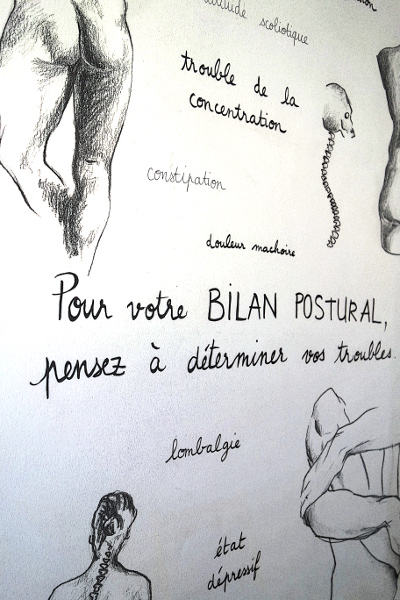 attitude scoliotique
trouble de la
concentration
constipation
douleur machoire
Pour votre BILAN POSTURAL,
pensez à déterminer vos troubles.
lombalgie
état
dépressif